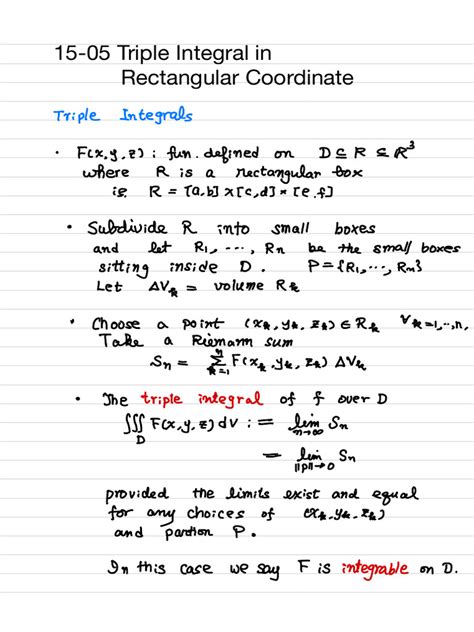 15-05 Triple Integral in
Rectangular Coordinate
Triple Integrals
• F(x,y,z) : fun. defined on D ⊆ R ⊆ ℝ³
where R is a rectangular box
ie. R = [a,b] × [c,d] × [e,f]
• Subdivide R into small boxes
and let R₁, ---, Rn be the small boxes
sitting inside D. P={R₁,---, Rn}
Let ΔVₖ = volume Rₖ
• Choose a point (xₖ, yₖ, zₖ) ∈ Rₖ ∀ₖ₌₁,--,n,
Take a Riemann sum
Sn = Σⁿₖ₌₁ F(xₖ, yₖ, zₖ) ΔVₖ
• The triple integral of f over D
∭_D F(x,y,z) dv : = lim_{n→∞} Sn
= lim_{||P||→0} Sn
provided the limits exist and equal
for any choices of (xₖ, yₖ, zₖ)
and partion P.
In this case we say F is integrable on D.